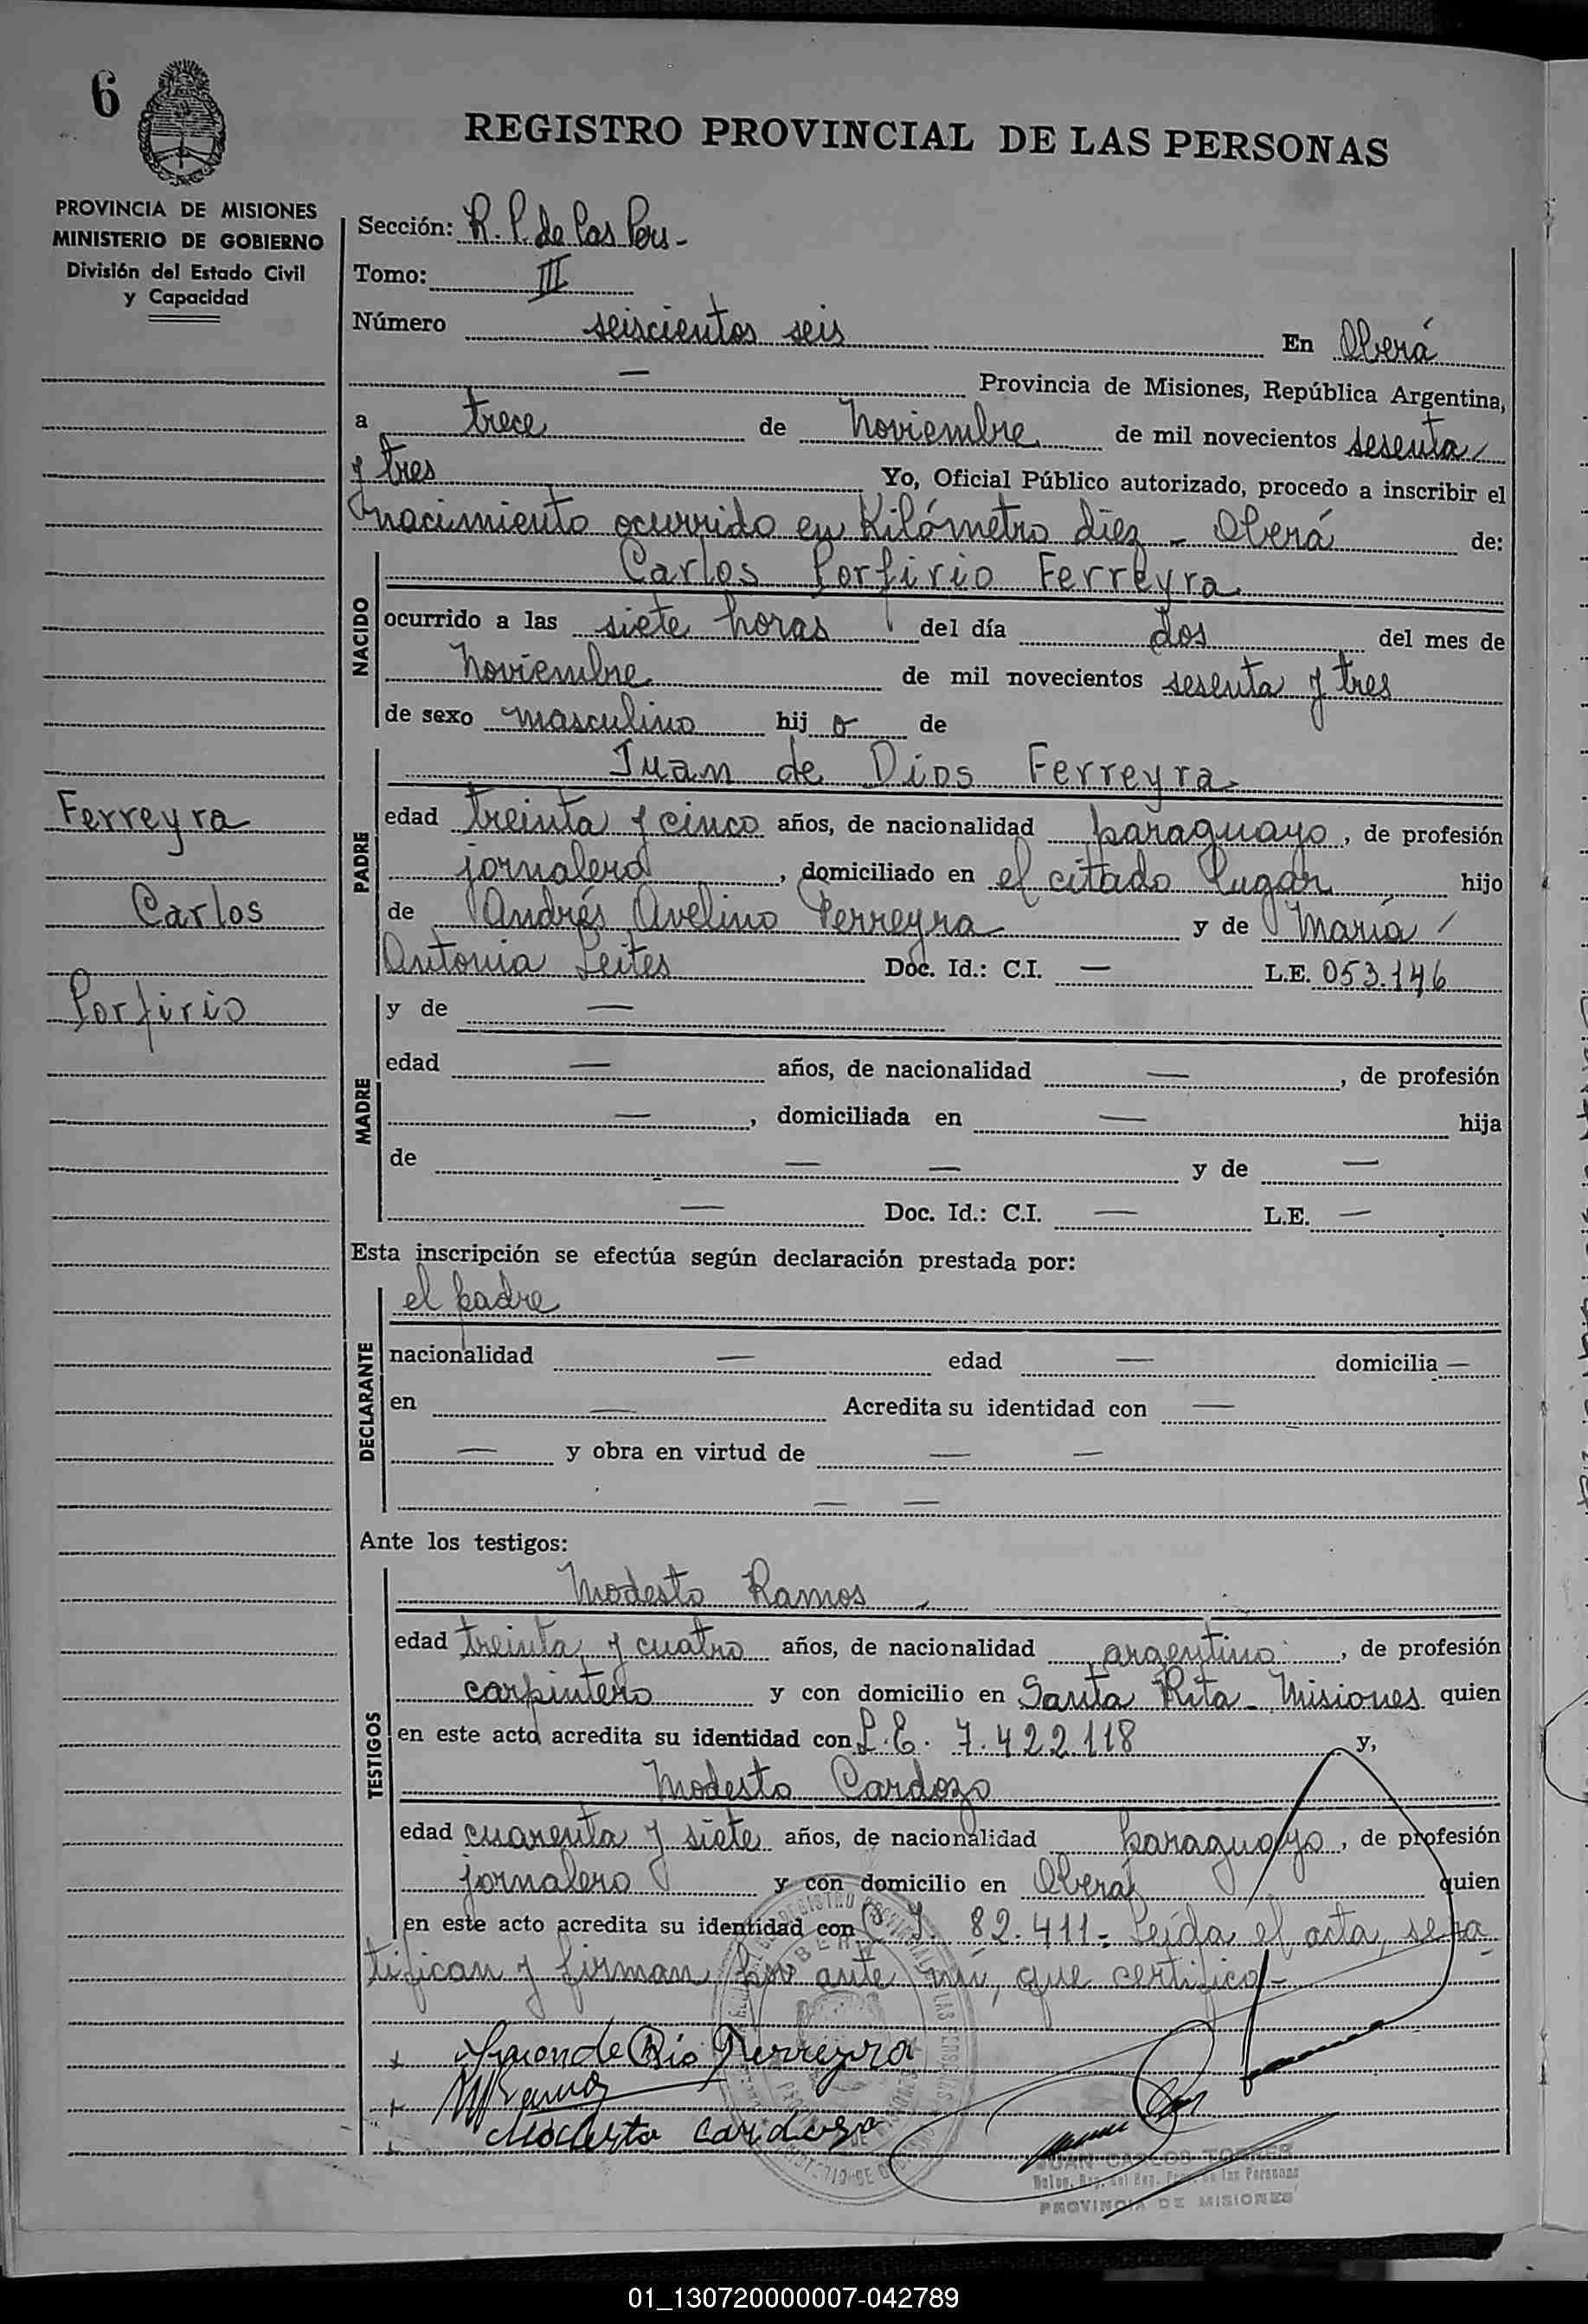 6
REGISTRO PROVINCIAL DE LAS PERSONAS
PROVINCIA DE MISIONES
MINISTERIO DE GOBIERNO
División del Estado Civil
y Capacidad
Sección: R. P. de las Pers-
Tomo: III
Número seiscientos seis En Oberá
— Provincia de Misiones, República Argentina,
a trece de noviembre de mil novecientos sesenta
y tres Yo, Oficial Público autorizado, procedo a inscribir el
nacimiento ocurrido en Kilómetro diez - Oberá de:
NACIDO
Carlos Porfirio Ferreyra
ocurrido a las siete horas del día dos del mes de
noviembre de mil novecientos sesenta y tres
de sexo masculino hij o de
PADRE
Juan de Dios Ferreyra
edad treinta y cinco años, de nacionalidad paraguayo, de profesión
jornalero, domiciliado en el citado lugar hijo
de Andrés Avelino Ferreyra y de María
Antonia Leites Doc. Id.: C.I. — L.E. 053.146
Ferreyra
Carlos
Porfirio
MADRE
y de —
edad — años, de nacionalidad —, de profesión
—, domiciliada en — hija
de — — y de —
— Doc. Id.: C.I. — L.E. —
Esta inscripción se efectúa según declaración prestada por:
DECLARANTE
el padre
nacionalidad — edad — domicilia —
en — Acredita su identidad con —
— y obra en virtud de — —
— —
Ante los testigos:
TESTIGOS
Modesto Ramos
edad treinta y cuatro años, de nacionalidad argentino, de profesión
carpintero y con domicilio en Santa Rita - Misiones quien
en este acto acredita su identidad con L.E. 7.422.118 y,
Modesto Cardozo
edad cuarenta y siete años, de nacionalidad paraguayo, de profesión
jornalero y con domicilio en Oberá quien
en este acto acredita su identidad con C. I. 82.411.- Leída el acta, se ra
tifican y firman por ante mí, que certifico-
Juan de Dio Ferreyra
MRamos
Modesto Cardozo
JUAN CARLOS
PROVINCIA DE MISIONES
01_130720000007-042789